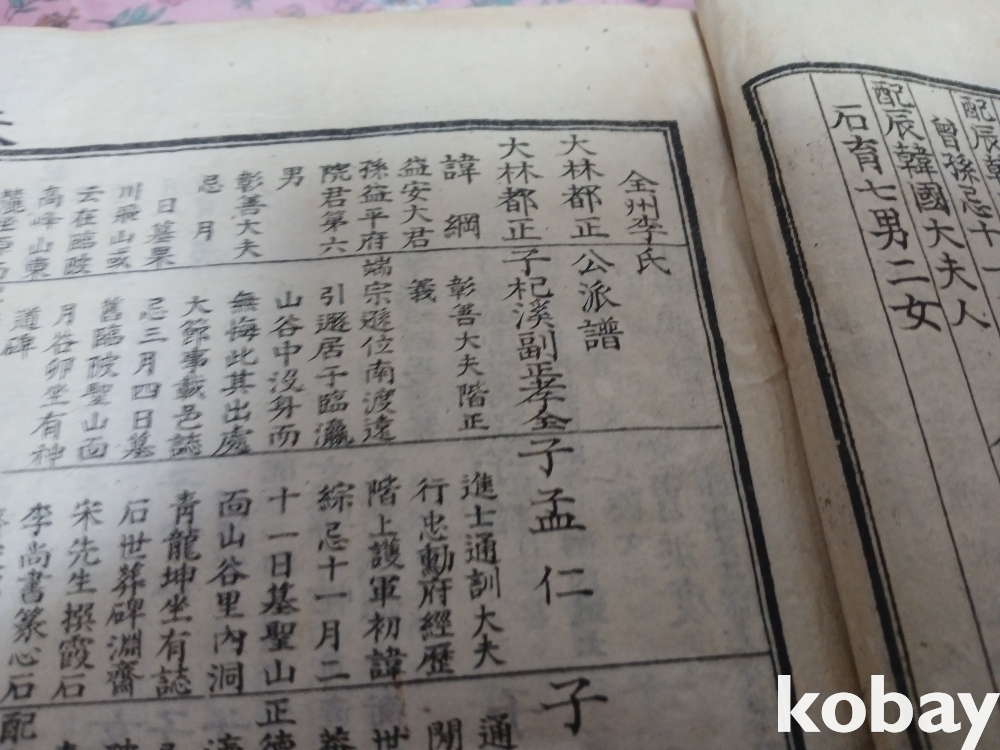 配辰韓
曾孫忌十一
配辰韓國大夫人
石育七男二女
全州李氏
大林都正公派譜
大林都正
諱綱
益安大君
孫益平府
院君第六
男
彰善大夫
忌月
日墓栗
川飛山或
云在臨陂
高峰山東
子杞溪副正孝全
彰善大夫階正
義
端宗遜位南渡遠
引遯居于臨瀛
山谷中沒身而
無悔此其出處
大節事載邑誌
忌三月四日墓
舊臨陂聖山面
月谷卯坐有神
道碑
子孟仁
進士通訓大夫
行忠勳府經歷
階上護軍初諱
綜忌十一月二
十一日墓聖山
面山谷里內洞
青龍坤坐有誌
石世葬碑淵齋
宋先生撰霞石
李尚書篆心石
配
子
通
閒
世
正德
kobay